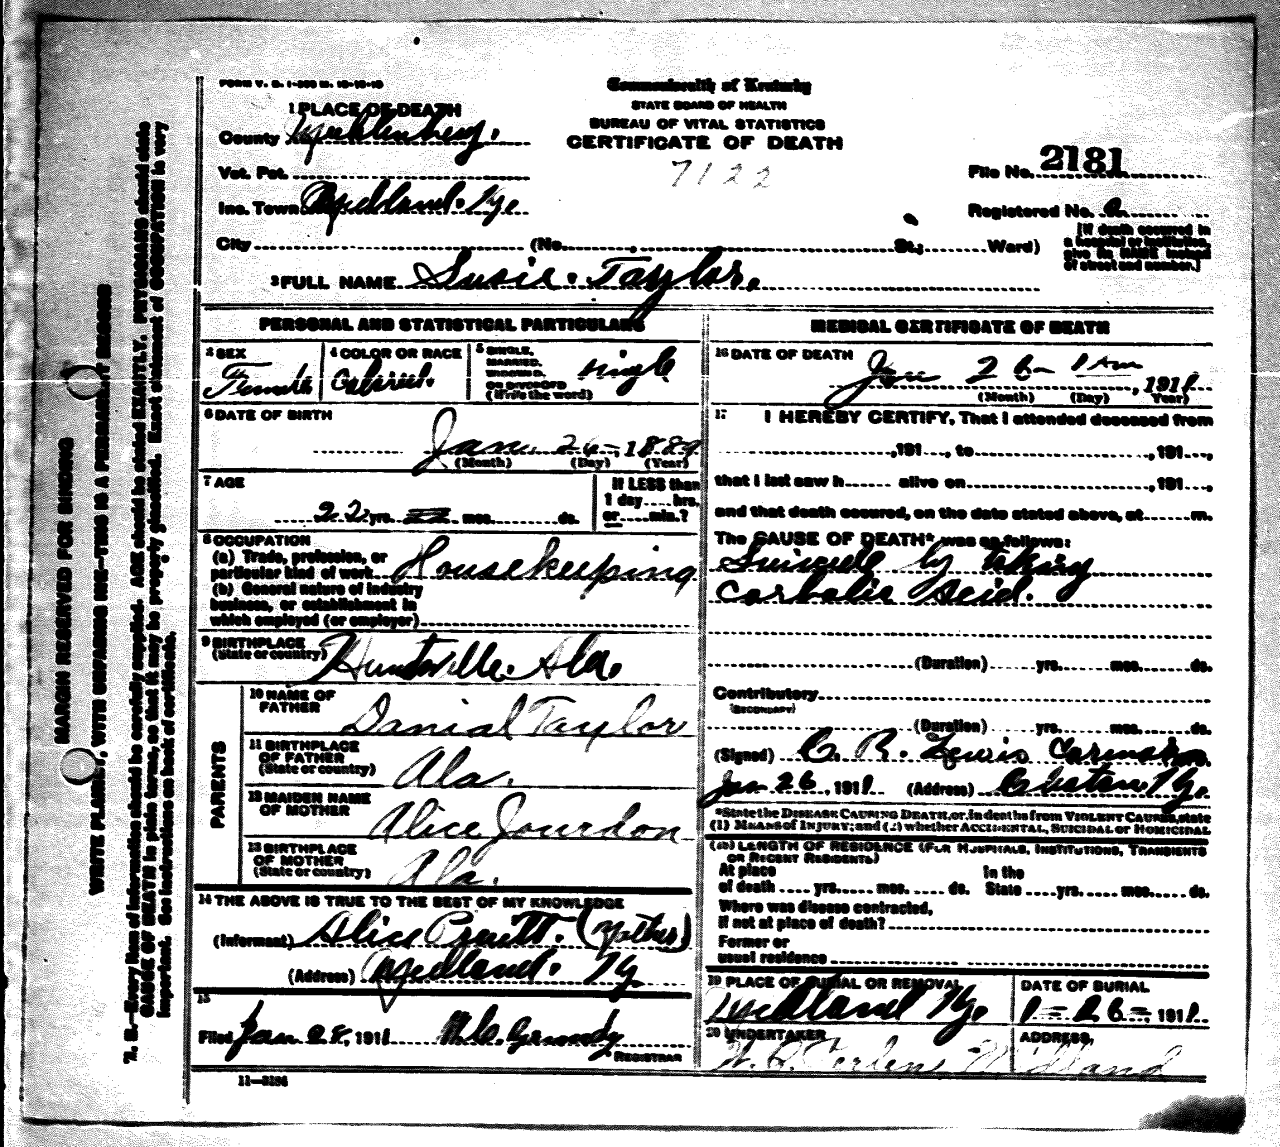 FORM V. S. 1-
Commonwealth of Kentucky
STATE BOARD OF HEALTH
BUREAU OF VITAL STATISTICS
CERTIFICATE OF DEATH
7122
1 PLACE OF DEATH
County Muhlenberg.
Vot. Pct.
Inc. Town Midland. Ky.
City (No. St.; Ward)
File No. 2181
Registered No. 2
[If death occurred in
a hospital or institution,
give its NAME instead
of street and number.]
2 FULL NAME Susie. Taylor.
PERSONAL AND STATISTICAL PARTICULARS
3 SEX
Female
4 COLOR OR RACE
Colored.
5 SINGLE,
MARRIED,
WIDOWED,
OR DIVORCED
(Write the word)
single
6 DATE OF BIRTH
Jan. 26-1889
(Month) (Day) (Year)
7 AGE
22 yrs. mos. ds.
If LESS than
1 day hrs.
or min.?
8 OCCUPATION
(a) Trade, profession, or
particular kind of work Housekeeping
(b) General nature of industry
business, or establishment in
which employed (or employer)
9 BIRTHPLACE
(State or country) Huntsville. Ala.
PARENTS
10 NAME OF
FATHER Danial Taylor
11 BIRTHPLACE
OF FATHER
(State or country) Ala.
12 MAIDEN NAME
OF MOTHER Alice Jourdon
13 BIRTHPLACE
OF MOTHER
(State or country) Ala.
14 THE ABOVE IS TRUE TO THE BEST OF MY KNOWLEDGE
(Informant) Alice Pruitt. (Mother)
(Address) Midland. Ky
15
Filed Jan 28, 1911 Grundy
REGISTRAR
11-3184
MEDICAL CERTIFICATE OF DEATH
16 DATE OF DEATH
Jan 26- 1 am, 1911
(Month) (Day) Year)
17 I HEREBY CERTIFY, That I attended deceased from
, 191 , to , 191 ,
that I last saw h alive on , 191 ,
and that death occured, on the date stated above, at m.
The CAUSE OF DEATH* was as follows:
Suicide by taking
Carbolic Acid.
(Duration) yrs. mos. ds.
Contributory
(SECONDARY)
(Duration) yrs. mos. ds.
(Signed) C. R. Lewis Coroner
Jan 26, 1911 (Address) Ky.
*State the DISEASE CAUSING DEATH, or, in deaths from VIOLENT CAUSES, state
(1) MEANS of INJURY; and (2) whether ACCIDENTAL, SUICIDAL or HOMICIDAL
(18) LENGTH OF RESIDENCE (FOR HOSPITALS, INSTITUTIONS, TRANSIENTS
OR RECENT RESIDENTS)
At place
of death yrs. mos. ds.
In the
State yrs. mos. ds.
Where was disease contracted,
if not at place of death?
Former or
usual residence
19 PLACE OF BURIAL OR REMOVAL
Midland Ky.
DATE OF BURIAL
1-26-, 1911.
20 UNDERTAKER
ADDRESS,
Midland
MARGIN RESERVED FOR BINDING
WRITE PLAINLY, WITH UNFADING INK—THIS IS A PERMANENT RECORD
N. B.—Every item of information should be carefully supplied. AGE should be stated EXACTLY. PHYSICIANS should state
CAUSE OF DEATH in plain terms, so that it may be properly classified. Exact statement of OCCUPATION is very
important. See instructions on back of certificate.